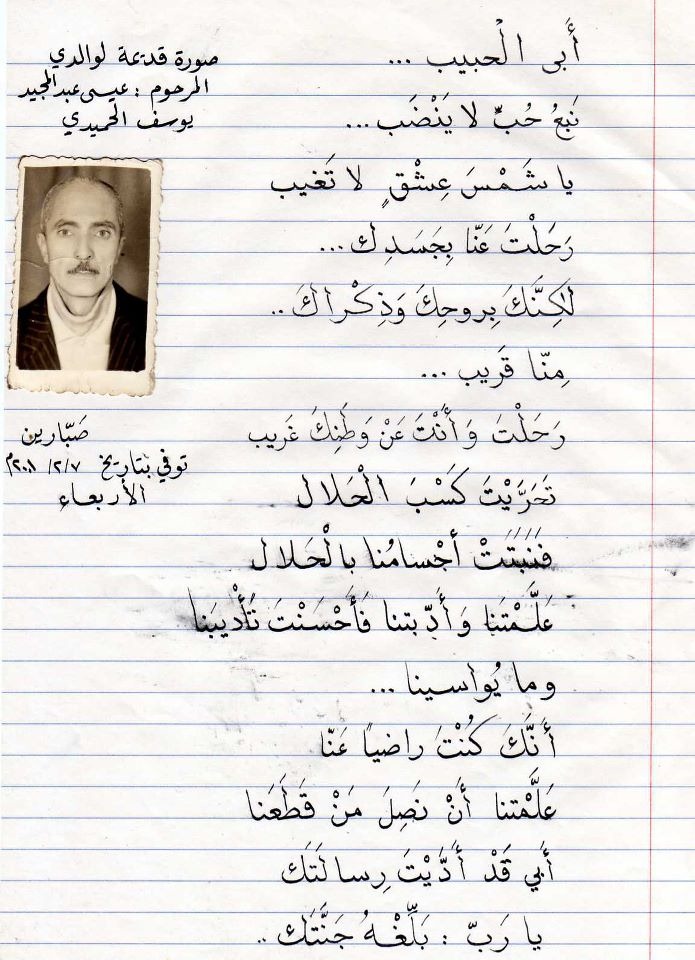 صورة قديمة لوالدي
المرحوم : عيسى عبد المجيد
يوسف الحميدي
صَبّارين
توفي بتاريخ ٧/٢/٢٠٠١م
الأربعاء
أَبي الْحبيب ...
نَبعُ حُبٍّ لا يَنْضَب...
يا شَمْسَ عِشْقٍ لا تَغيب
رَحَلْتَ عَنّا بِجَسَدِك...
لٰكِنَّكَ بِروحِكَ وَذِكْراكَ..
مِنّا قَريب ...
رَحَلْتَ وَأَنْتَ عَنْ وَطَنِكَ غَريب
تَحَرَّيْتَ كَسْبَ الْحَلال
فَنَبَتَتْ أجْسامُنا بالْحَلال
عَلَّمْتَنا وَأَدّبتنا فَأَحْسَنْتَ تَأْديبَنا
وما يُواسينا ...
أَنَّكَ كُنْتَ راضياً عَنّا
عَلَّمْتنا أَنْ نَصِلَ مَنْ قَطَعَنا
أَبي قَدْ أَدَّيْتَ رِسالَتَك
يا رَبّ : بَلِّغْهُ جَنَّتَك ..